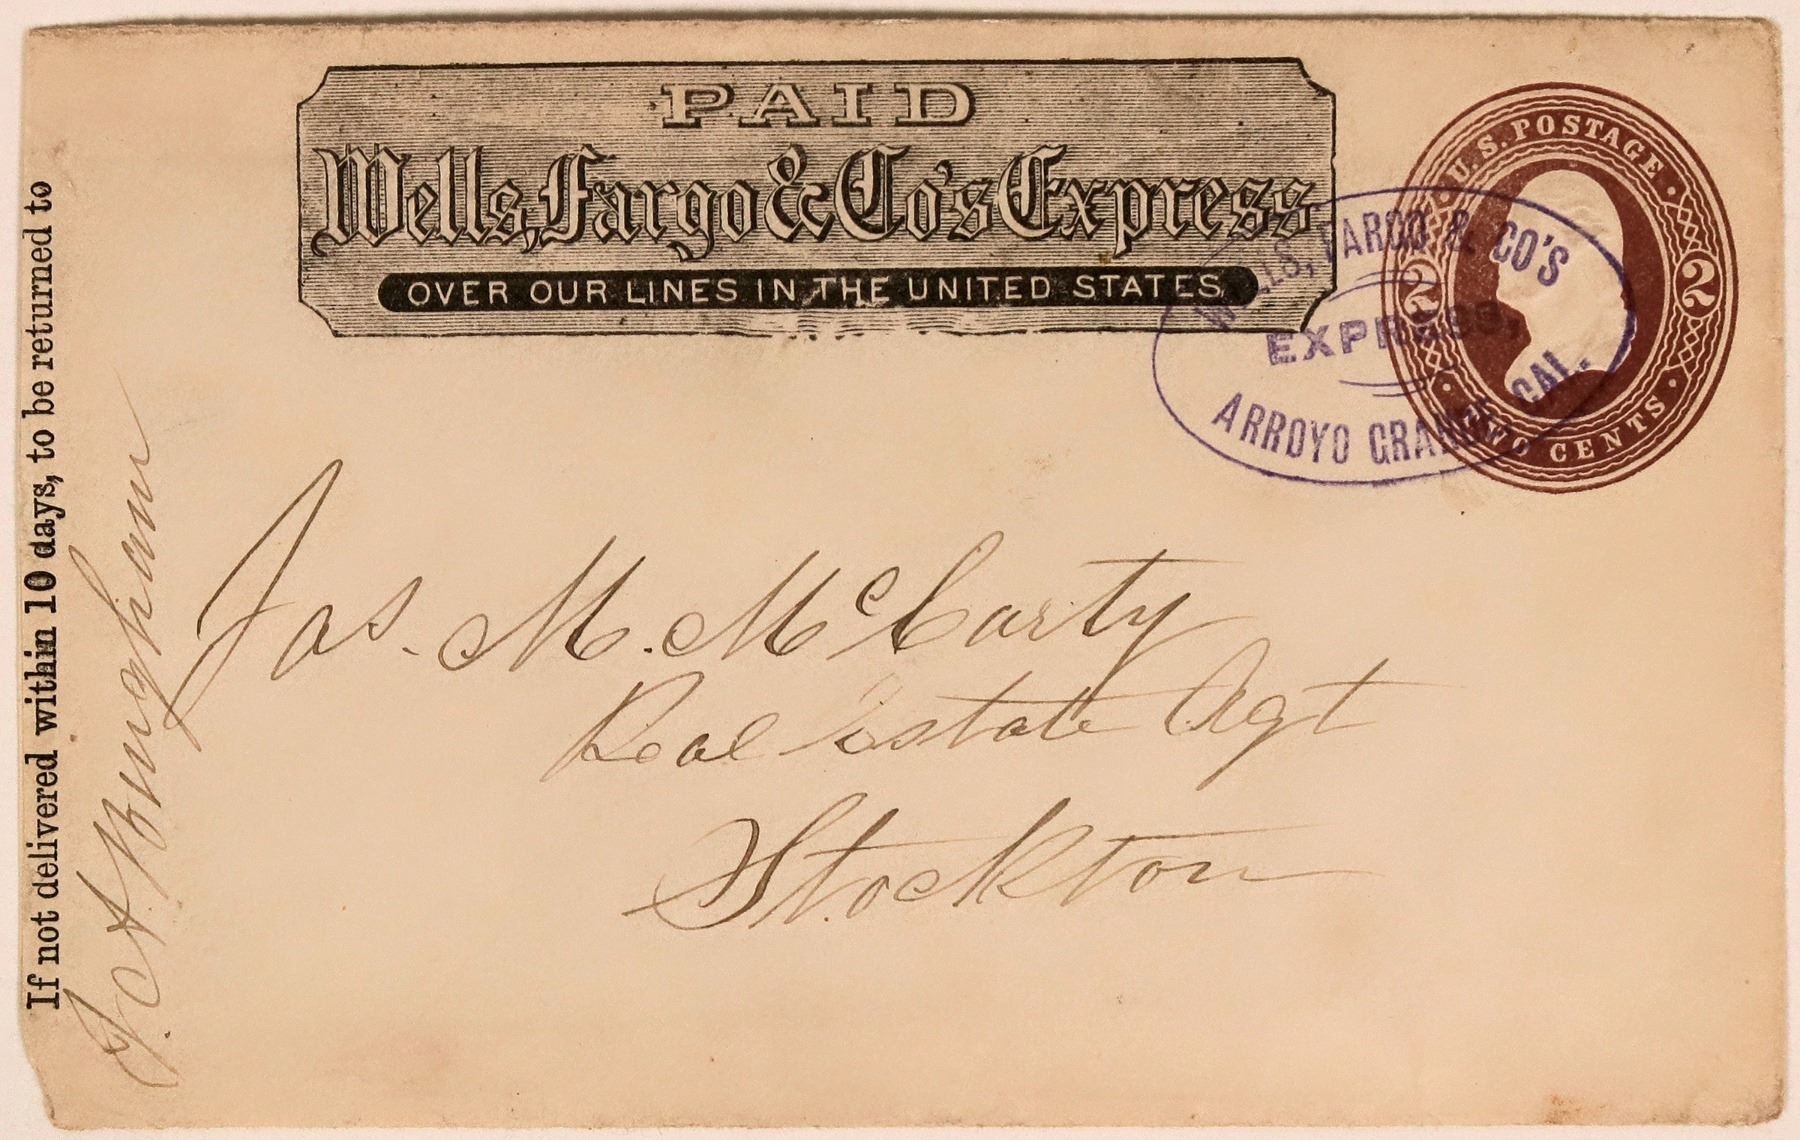 PAID
Wells, Fargo & Co's Express
OVER OUR LINES IN THE UNITED STATES.
U.S. POSTAGE
2 2
TWO CENTS
WELLS, FARGO & CO'S
EXPRESS,
ARROYO GRANDE CAL.
If not delivered within 10 days, to be returned to
Bingham
Jas. M. McCarty
Real Estate Agt
Stockton